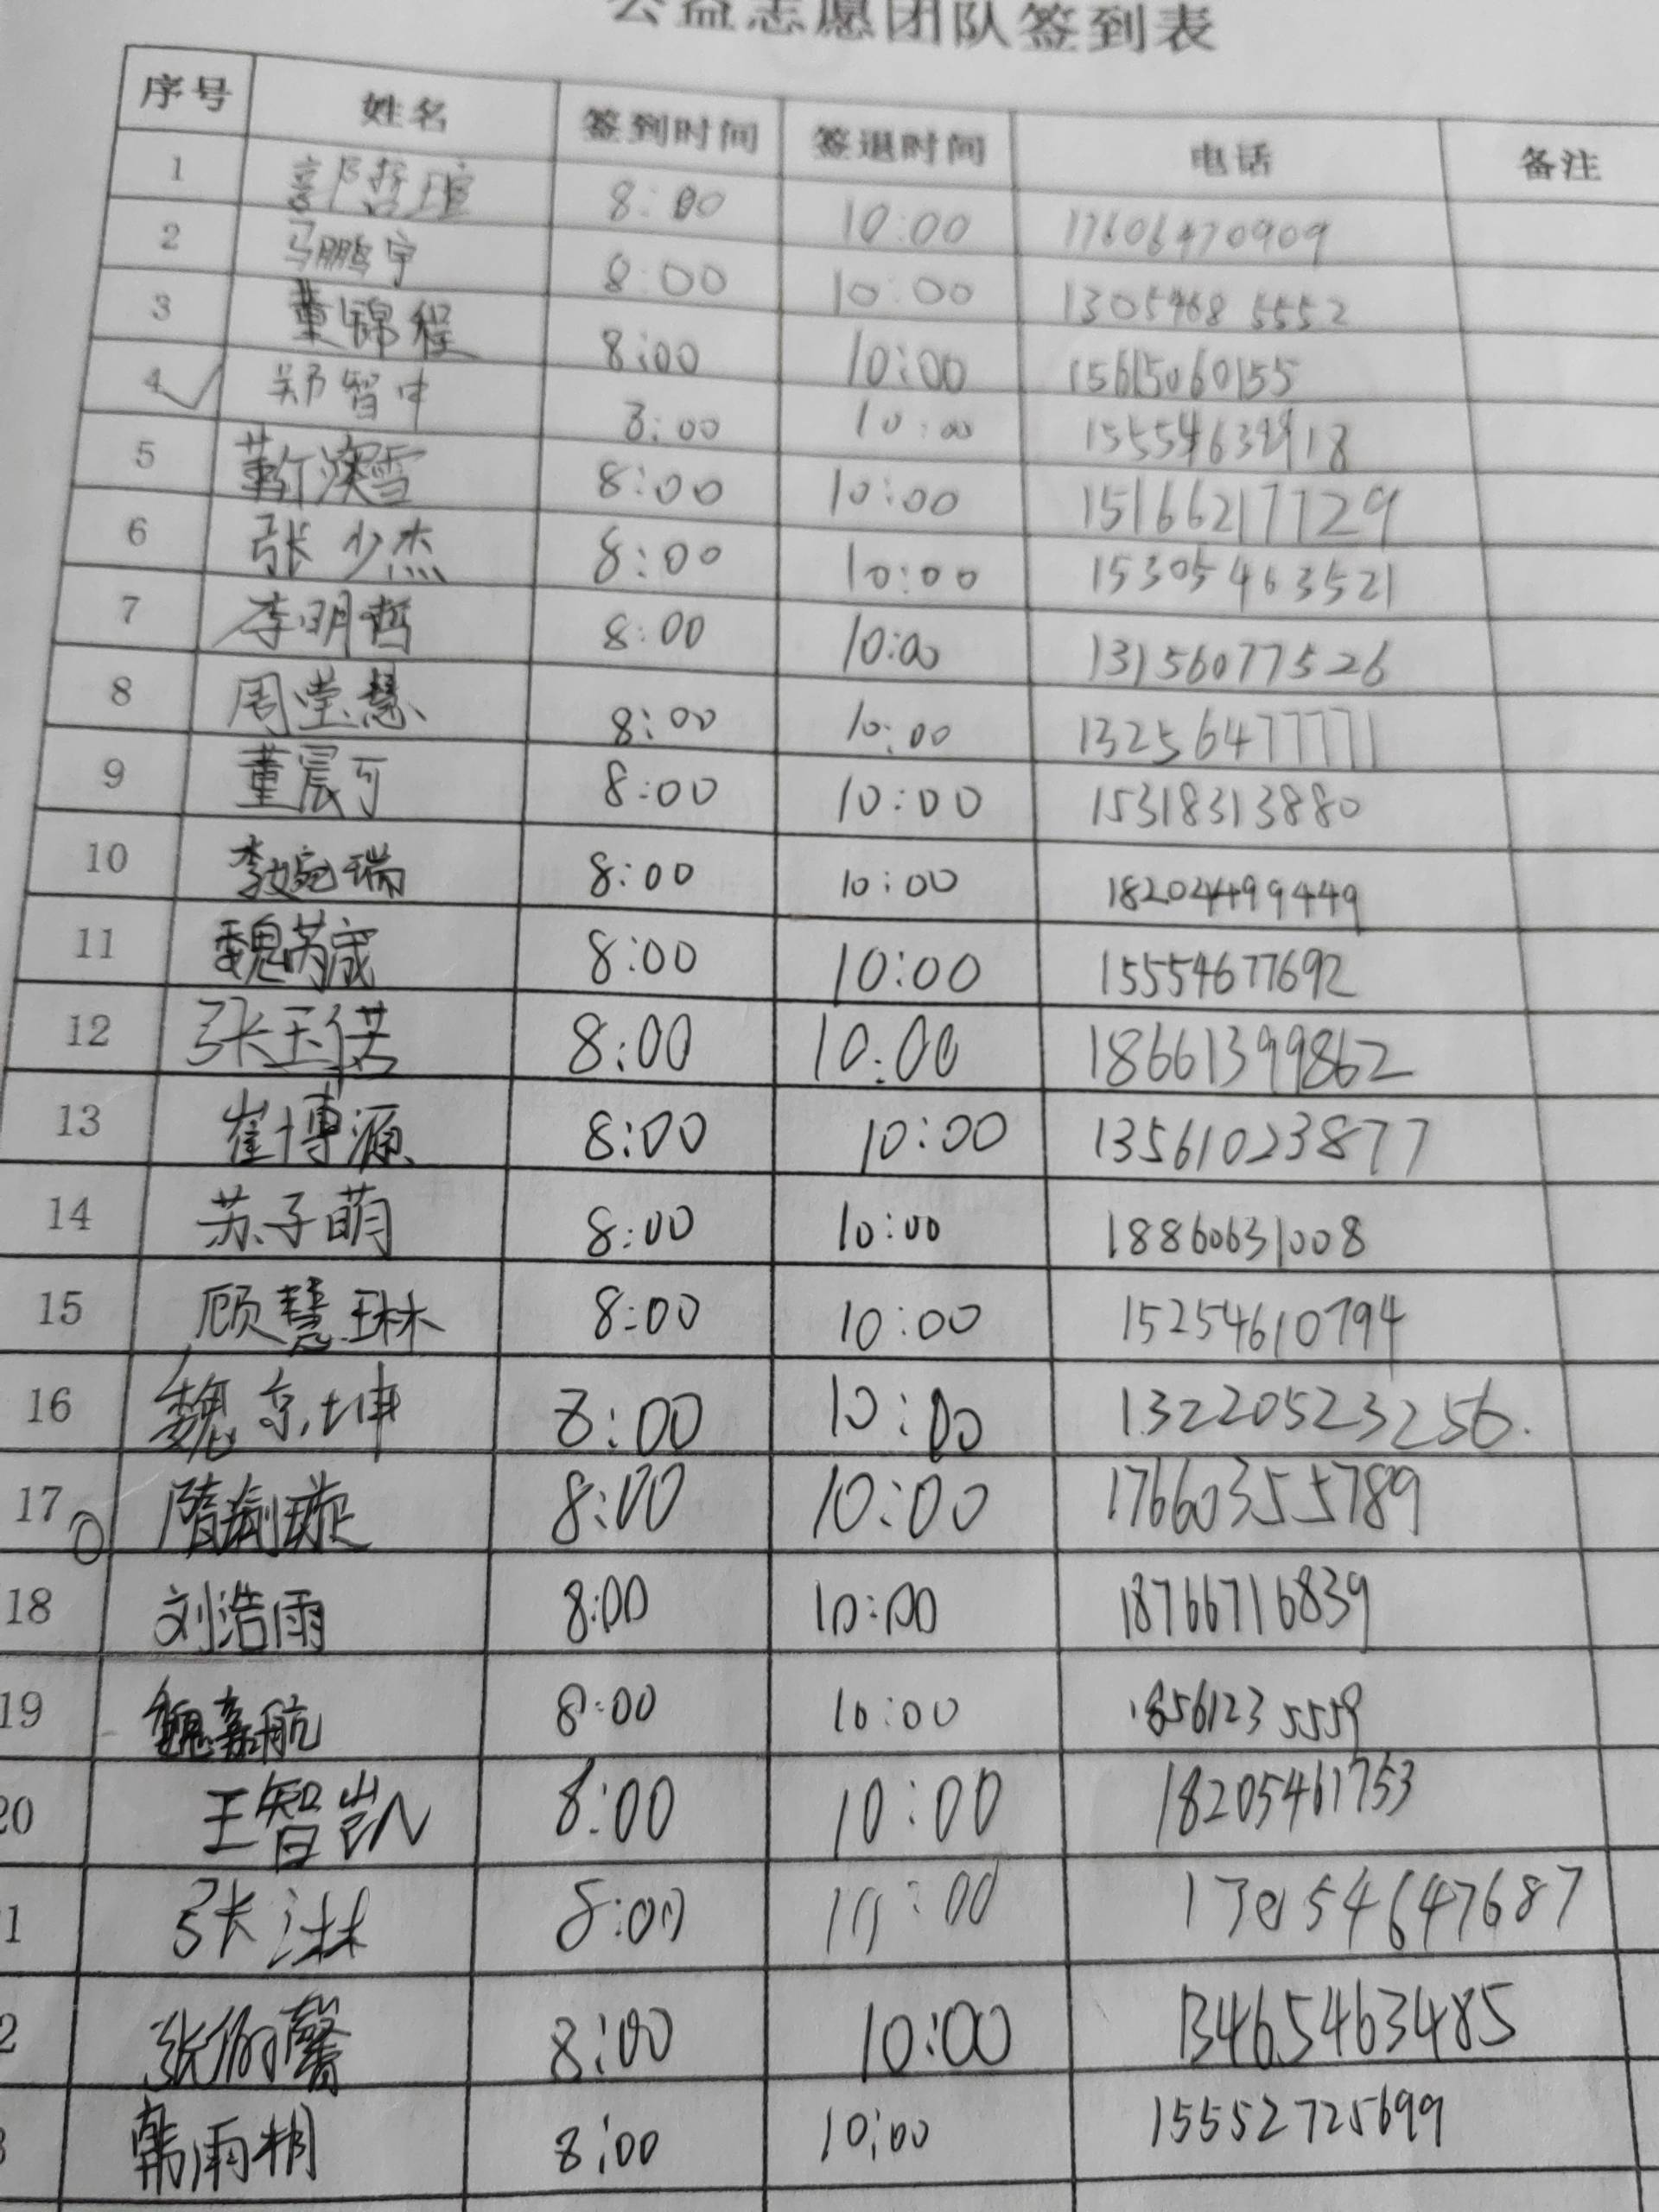 公益志愿团队签到表
序号 姓名 签到时间 签退时间 电话 备注
1 8:00 10:00 17606470909
2 马鹏宇 8:00 10:00 13054685552
3 董锦程 8:00 10:00 15615060155
4 郑智中 8:00 10:00
5 8:00 10:00 15166217729
6 张少杰 8:00 10:00 15305463521
7 李明哲 8:00 10:00 13156077526
8 周莹慧 8:00 10:00 13256477771
9 董晨可 8:00 10:00 15318313880
10 李婉瑞 8:00 10:00
11 8:00 10:00 15554677692
12 张玉偌 8:00 10:00 18661399862
13 崔博源 8:00 10:00 13561023877
14 苏子萌 8:00 10:00 18860631008
15 顾慧琳 8:00 10:00 15254610794
16 魏京坤 8:00 10:00 13220523256.
17 8:00 10:00 17660355789
18 刘浩雨 8:00 10:00 18766716839
19 魏嘉航 8:00 10:00 18561235559
20 王智凯 8:00 10:00 18205461753
1 张淋 8:00 10:00
2 8:00 10:00 13465463485
3 韩雨桐 8:00 10:00 15552725699